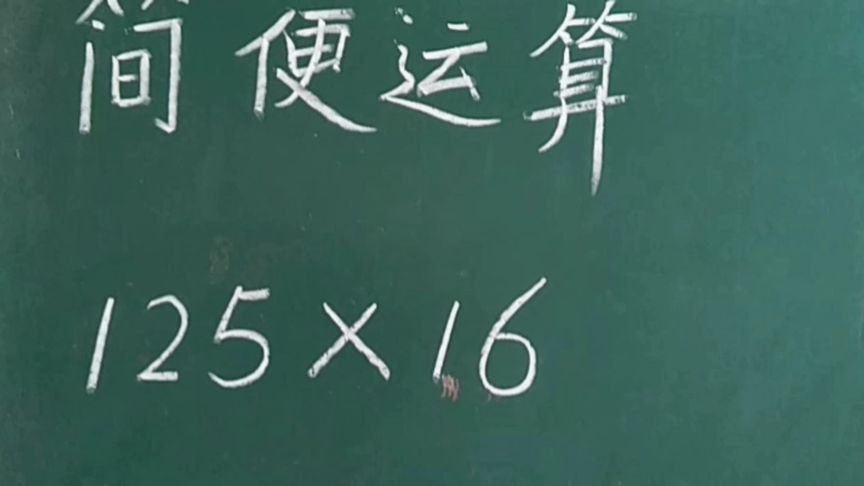 简便运算
125×16